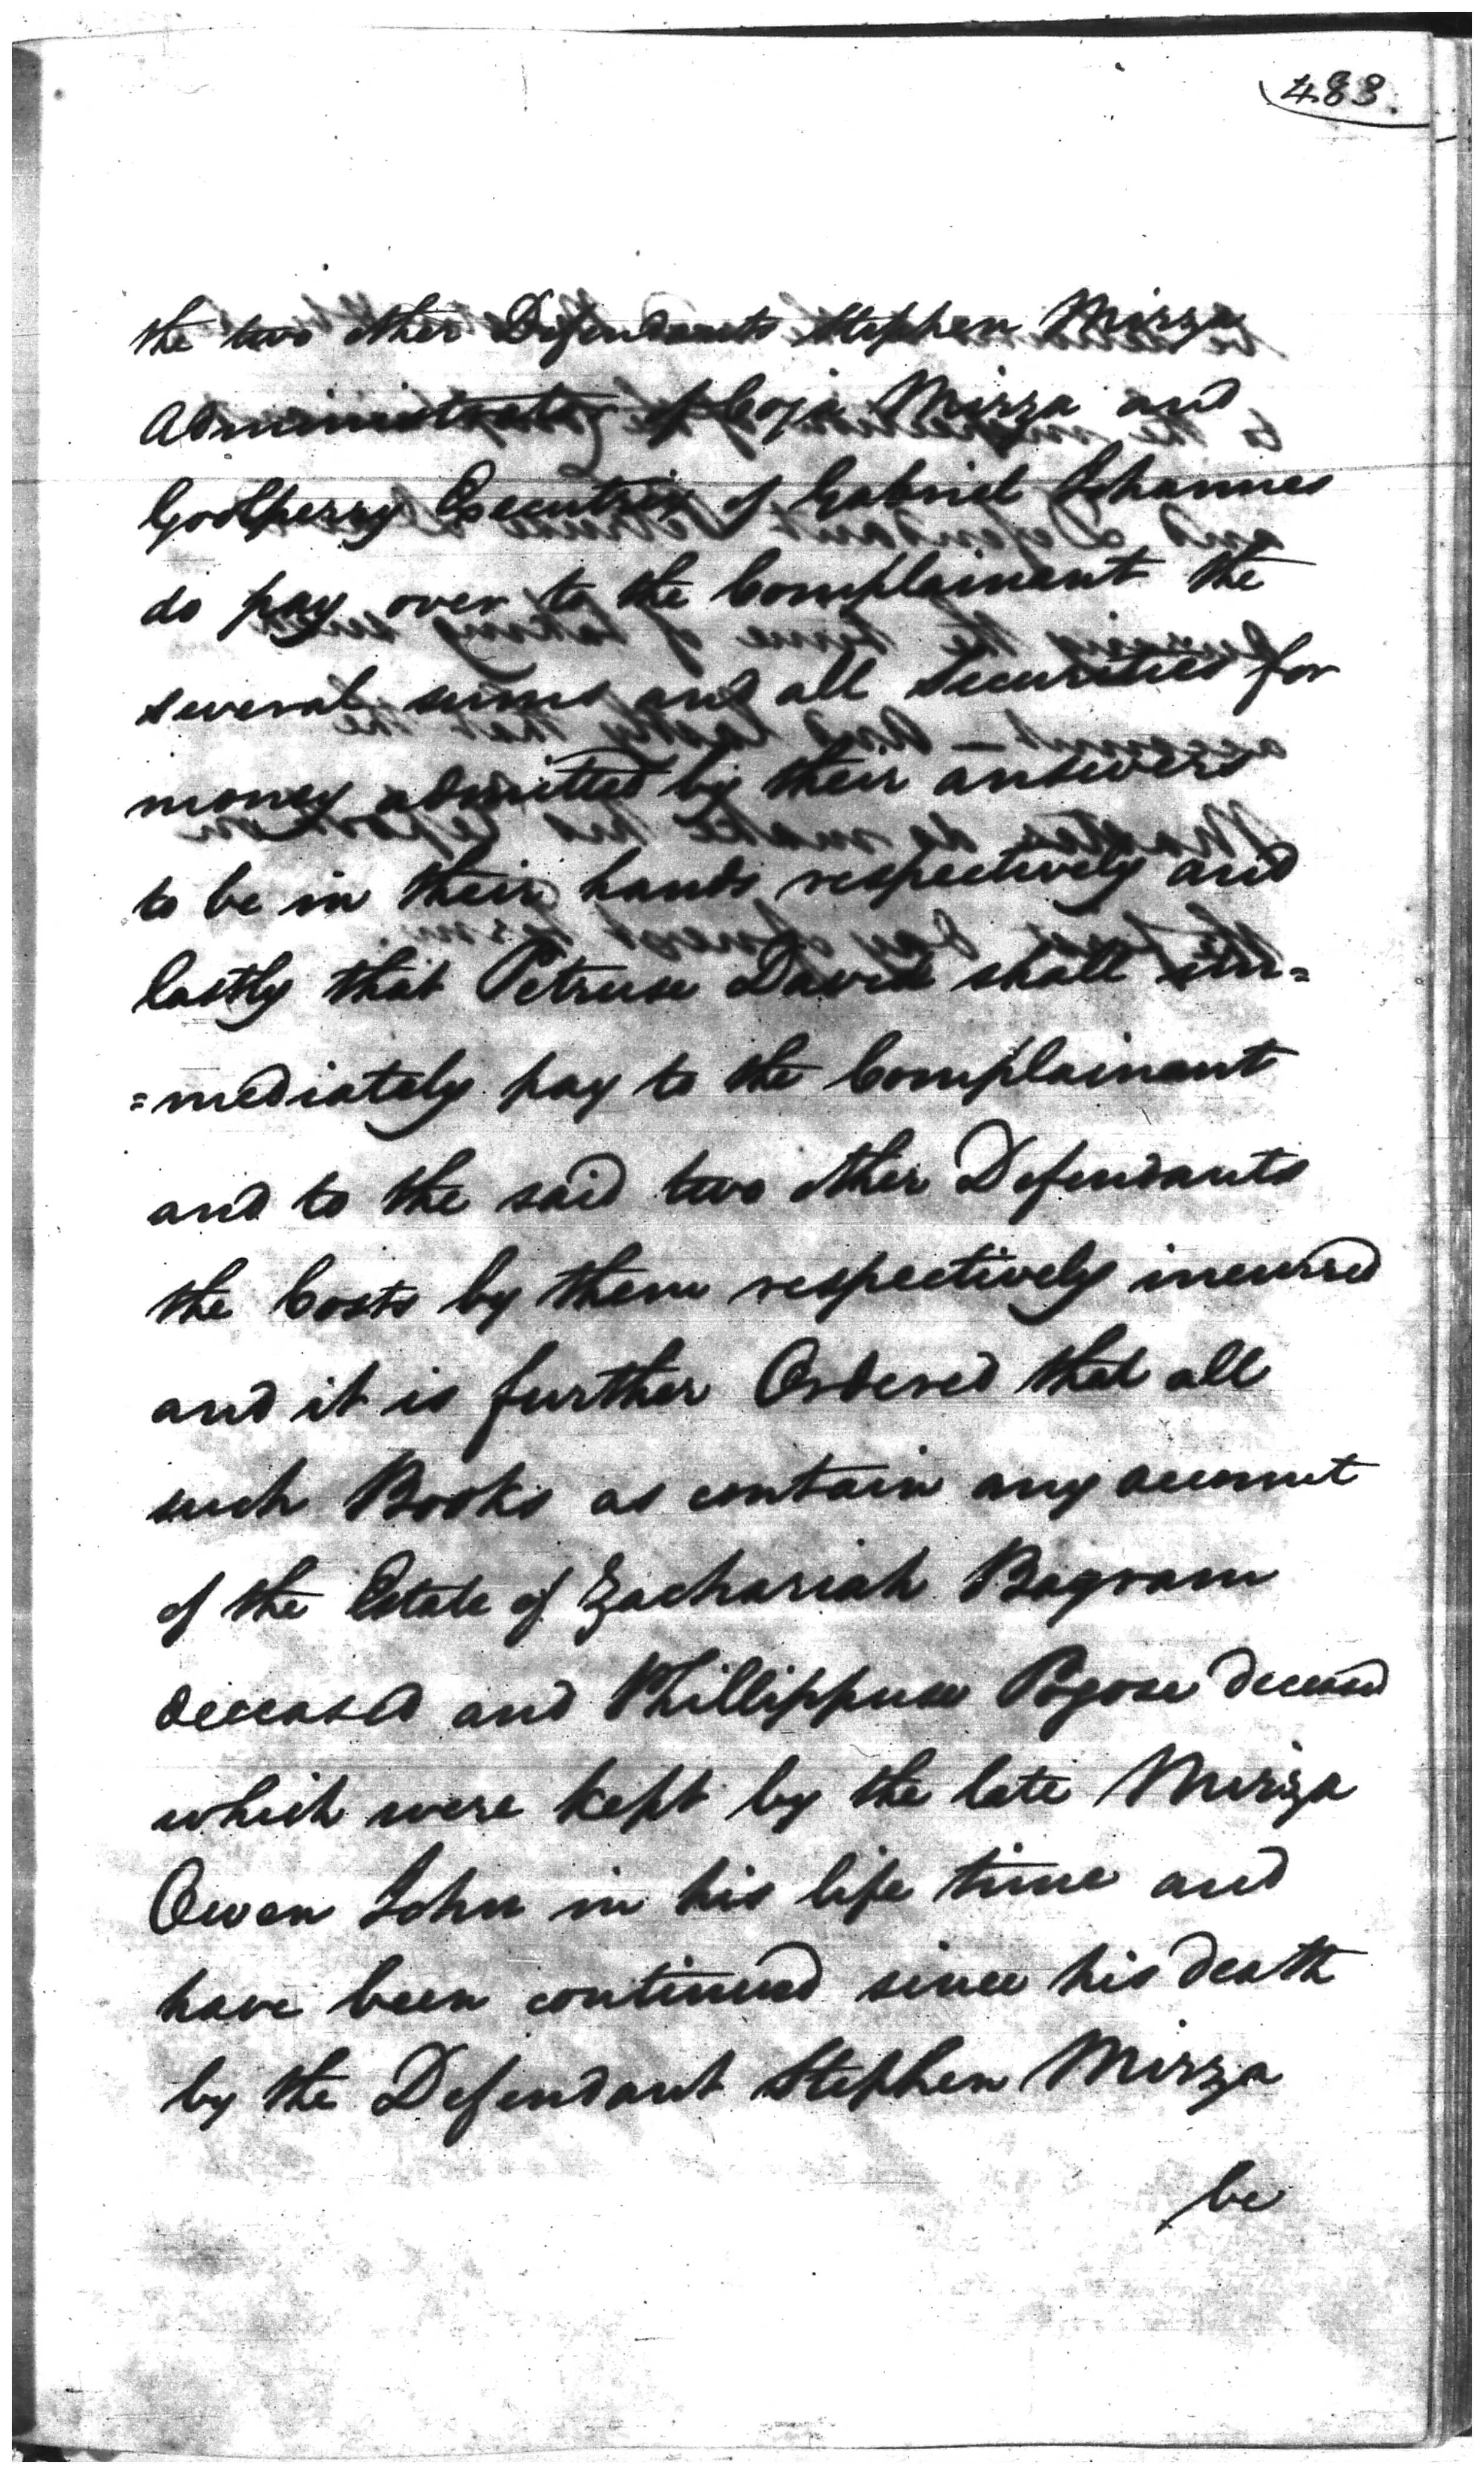 483.
the two other Defendants Stephen Mirza
Administrator of Coja Mirza and
Goolperry Executrix of Gabriel Johannes
do pay over to the Complainant the
several sums and all Securities for
money admitted by their answers
to be in their hands respectively and
lastly that Petruse David shall im=
=mediately pay to the Complainant
and to the said two other Defendants
the Costs by them respectively incurred
and it is further Ordered that all
such Books as contain any account
of the Estate of Zachariah Bagram
deceased and Phillippuse Pogose deceased
which were kept by the late Mirza
Owen John in his life time and
have been continued since his death
by the Defendant Stephen Mirza
be